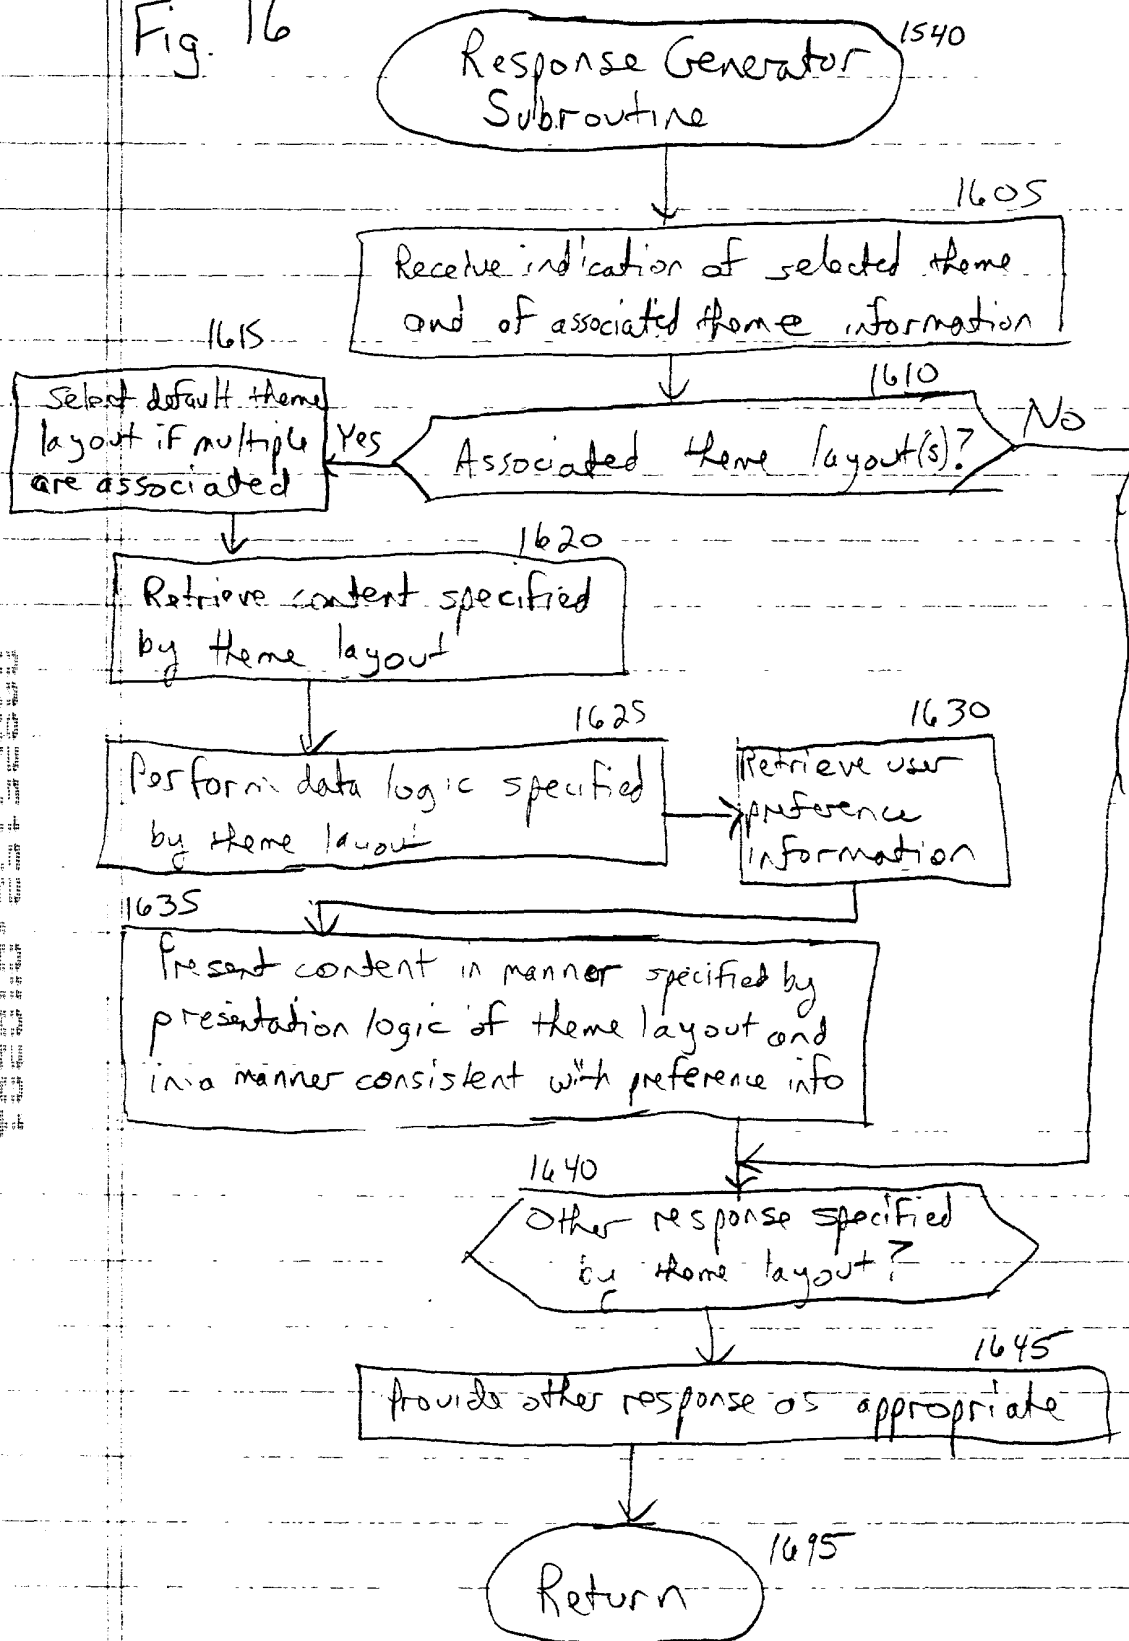 Fig. 16
1540
Response Generator
Subroutine
1605
Receive indication of selected theme
and of associated theme information
1610
Associated theme layout(s)?
Yes
No
1615
Select default theme
layout if multiple
are associated
1620
Retrieve content specified
by theme layout
1625
Perform data logic specified
by theme layout
1630
Retrieve user
preference
information
1635
Present content in manner specified by
presentation logic of theme layout and
in a manner consistent with preference info
1640
Other response specified
by theme layout?
1645
Provide other response as appropriate
1695
Return